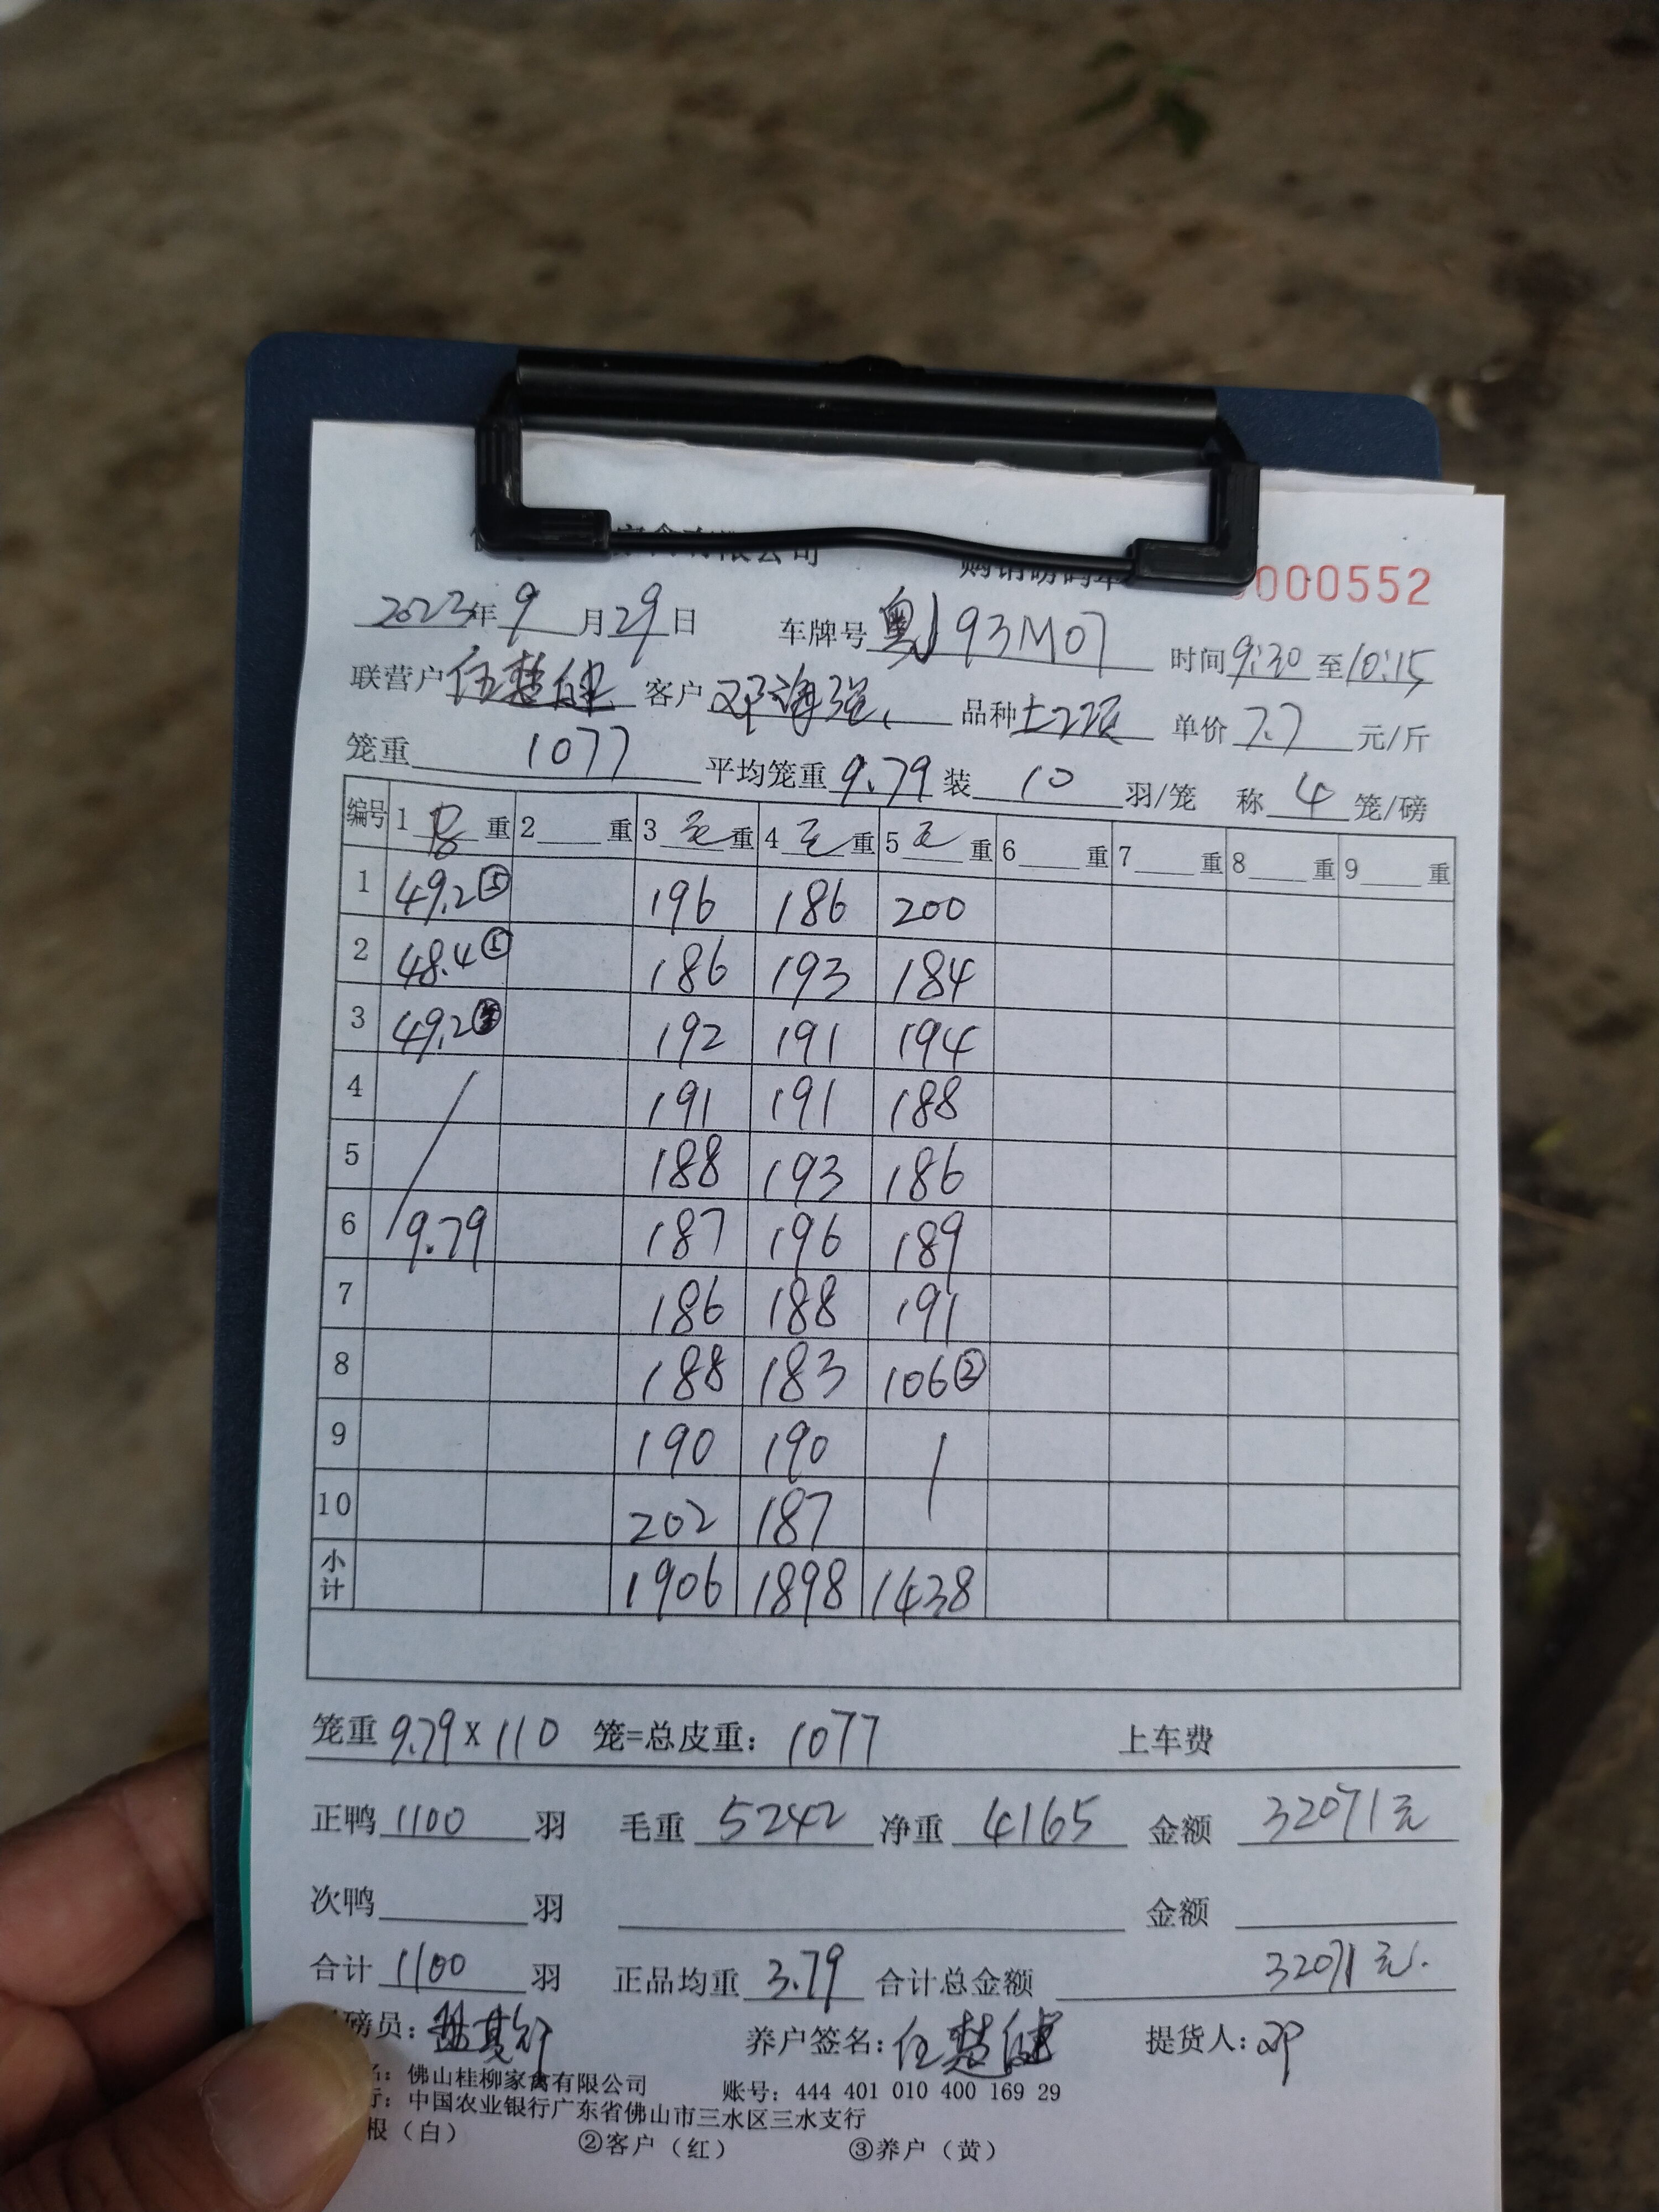 有限公司 购销磅码单 000552
2023年9月29日 车牌号 粤J93M07 时间9:30至10:15
联营户 伍慧健 客户 邓海强 品种 土22项 单价7.7元/斤
笼重1077 平均笼重9.79 装10羽/笼 称4笼/磅
编号 1皮重 2重 3毛重 4毛重 5毛重 6重 7重 8重 9重
1 49.2⑤ 196 186 200
2 48.4⑤ 186 193 184
3 49.2 192 191 194
4 191 191 188
5 188 193 186
6 9.79 187 196 189
7 186 188 191
8 188 183 106②
9 190 190
10 202 187
小计 1906 1898 1438
笼重9.79×110 笼=总皮重：1077 上车费
正鸭1100羽 毛重5242 净重4165 金额32071元
次鸭 羽 金额
合计1100羽 正品均重3.79 合计总金额 32071元.
磅员： 养户签名：伍慧健 提货人：邓
名：佛山桂柳家禽有限公司 账号：444 401 010 400 169 29
行：中国农业银行广东省佛山市三水区三水支行
根（白） ②客户（红） ③养户（黄）